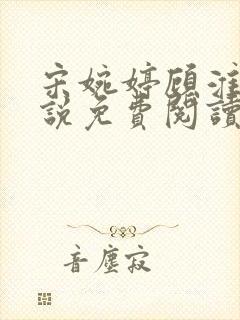 宋婉婷顾淮
說免費閱讀
音塵寂